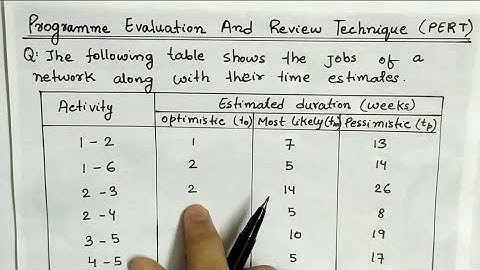 Programme Evaluation And Review Technique (PERT)
Q: The following table shows the jobs of a
network along with their time estimates.
Activity Estimated duration (weeks)
optimistic (to) Most likely (tm) Pessimistic (tp)
1-2 1 7 13
1-6 2 5 14
2-3 2 14 26
2-4 5 8
3-5 10 19
4-5 5 17